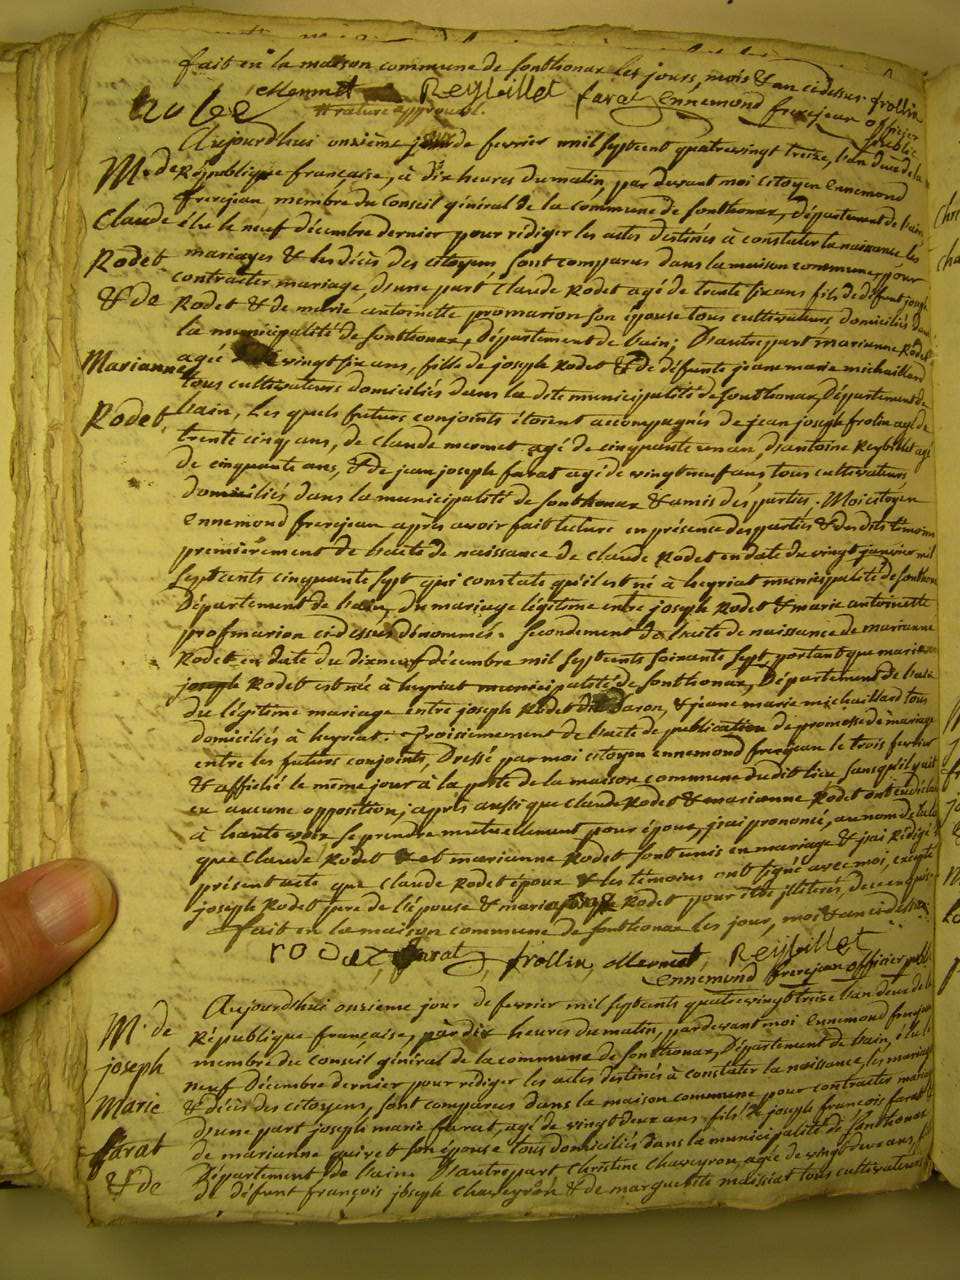 fait en la maison commune de sonthonax les jours, mois & an cidessus frollin
Memmet Reybillet farat ennemond frerejean officier
rature approuvé. public
Aujourdhui onzième jour de fevrier mil sept cent quatrevingt treize, l'an deux de la
M. de République française, à dix heures du matin, par devant moi citoyen ennemond
frerejean, membre du Conseil général de la commune de sonthonax, département de l'ain
Claude élu le neuf décembre dernier pour rédiger les actes destinés à constater la naissance les
Rodet mariages & les décès des citoyens sont comparus dans la maison commune, pour
contracter mariage, d'une part Claude Rodet agé de trente six ans fils de défunt joseph
& de Rodet & de marie antoinette promarion son épouse tous cultivateurs domiciliés dans
la municipalité de sonthonax, département de l'ain; D'autre part marianne Rodet
Marianne agée vingt six ans, fille de joseph Rodet & de défunte jeanne marie michaillard
tous cultivateurs domiciliés dans la dite municipalité de sonthonax, Département de
Rodet, l'ain, Les quels futurs conjoints étoient accompagnés de jean joseph frolin agé de
trente cinq ans, de claude memet agé de cinquante un an, d'antoine Reybillet agé
de cinquante ans, & de jean joseph farat agé de vingt neuf ans tous cultivateurs
domiciliés dans la municipalité de sonthonax & amis des parties. Moi citoyen
ennemond frerejean après avoir fait lecture en présence des parties & des dits témoins
premièrement de l'acte de naissance de Claude Rodet en date du vingt janvier mil
sept cents cinquante sept qui constate qu'il est né à heyriat municipalité de sonthonax
Département de l'ain, du mariage légitime entre joseph Rodet & marie antoinette
promarion ci dessus dénommés. Secondement de l'acte de naissance de marianne
Rodet en date du dixneuf décembre mil sept cents soixante sept portant que marianne
joseph Rodet est née à heyriat municipalité de sonthonax, Département de l'ain
du légitime mariage entre joseph Rodet dit Baron, & jeanne marie michaillard tous
domiciliés à heyriat. Troisiemement de l'acte de publication de promesse de mariage
entre les futurs conjoints, Dressé par moi citoyen ennemond frerejean le trois fevrier
& affiché le même jour à la porte de la maison commune du dit lieu sans qu'il y ait
eu aucune opposition, après aussi que claude Rodet & marianne Rodet ont eu déclaré
à haute voix se prendre mutuellement pour époux, j'ai prononcé, au nom de la loi
que Claude Rodet & et marianne Rodet sont unis en mariage & j'ai Rédigé le
présent acte que Claude Rodet époux & les témoins ont signé avec moi, excepté
joseph Rodet père de l'épouse & marianne Rodet pour être illitérés, de ce enquis
fait en la maison commune de sonthonax les jour, mois & an ci dessus.
rodet, farat, frollin, Memmet, Reybillet
ennemond frerejean officier public
Aujourdhui onzième jour de fevrier mil sept cents quatrevingt treize l'an deux de la
M. de République française, par dix heures du matin, par devant moi ennemond frerejean
joseph membre du Conseil général de la commune de sonthonax, Département de l'ain, élu le
neuf Décembre dernier pour rédiger les actes destinés à constater la naissance, les mariages
Marie & décès des citoyens, sont comparus dans la maison commune pour contracter mariage
d'une part joseph marie farat, agé de vingt deux ans fils de joseph françois farat &
farat de marianne son épouse tous domiciliés dans la municipalité de sonthonax
Département de l'ain D'autre part Christine Chaveyron, agée de vingt deux ans fille
& de de défunt françois joseph Chaveyron & de marguerite tous cultivateurs